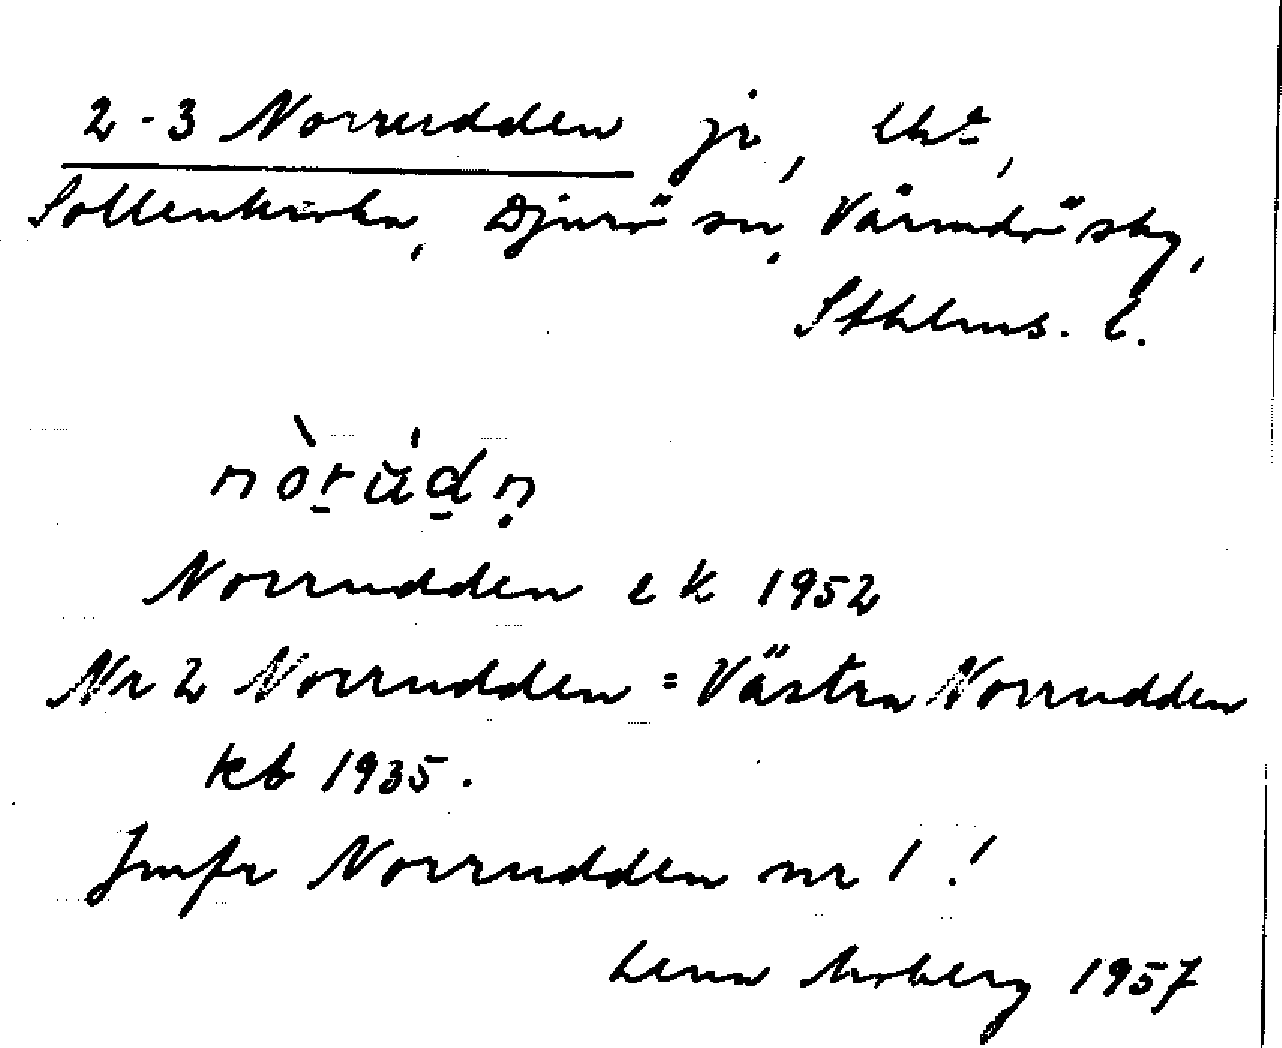 2-3 Norrudden jr, lht,
Sollenkroka, Djurö sn, Värmdö skg,
Sthlms. l.
nòrúdn
Norrudden ek 1952
Nr 2 Norrudden = Västra Norrudden
kb 1935.
Jmfr Norrudden nr 1!
Lena Moberg 1957